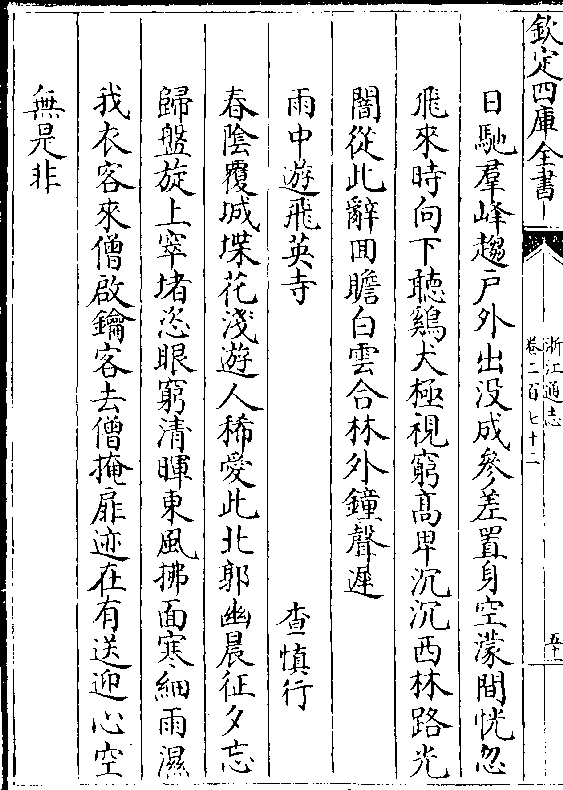 欽定四庫全書
浙江通志
卷二百七十二
五十
日馳羣峰趨戶外出没成參差置身空濛間恍忽
飛來時向下聴鷄犬極視窮髙卑沉沉西林路光
闇從此辭回瞻白雲合林外鐘聲遲
雨中遊飛英寺 查慎行
春陰覆城堞花淺遊人稀愛此北郭幽晨征夕忘
歸盤旋上窣堵恣眼窮清暉東風拂面寒細雨濕
我衣客來僧啟鑰客去僧掩扉迹在有送迎心空
無是非